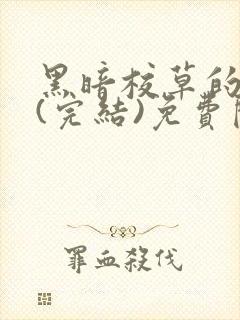 黑暗校草的
(完結)免費
罪血殺伐